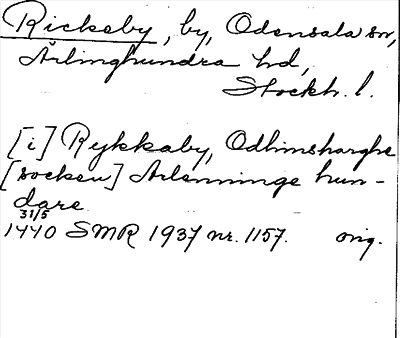 Rickeby, by, Odensala sn,
Ärlinghundra hd,
Stockh. l.
[i] Rykkaby, Odhinsharghe
[socken] Arlenninge hun-
dare
31/5
1440 SMR 1937 nr. 1157. orig.